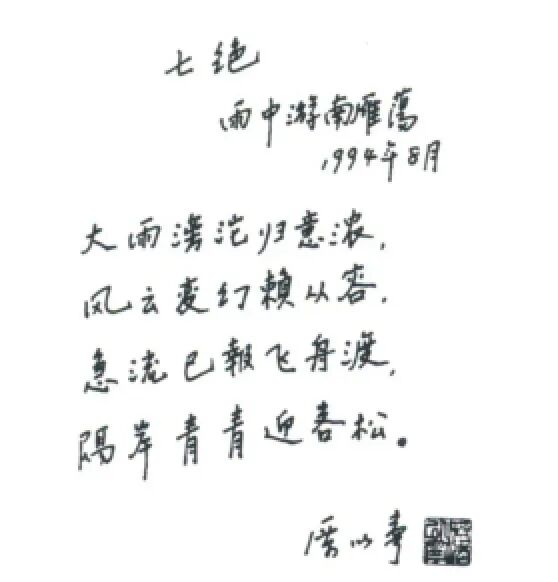 七绝
雨中游南雁荡
1994年8月
大雨滂沱归意浓,
风云变幻赖从容.
急流已报飞舟渡,
隔岸青青迎春松。
厉以宁